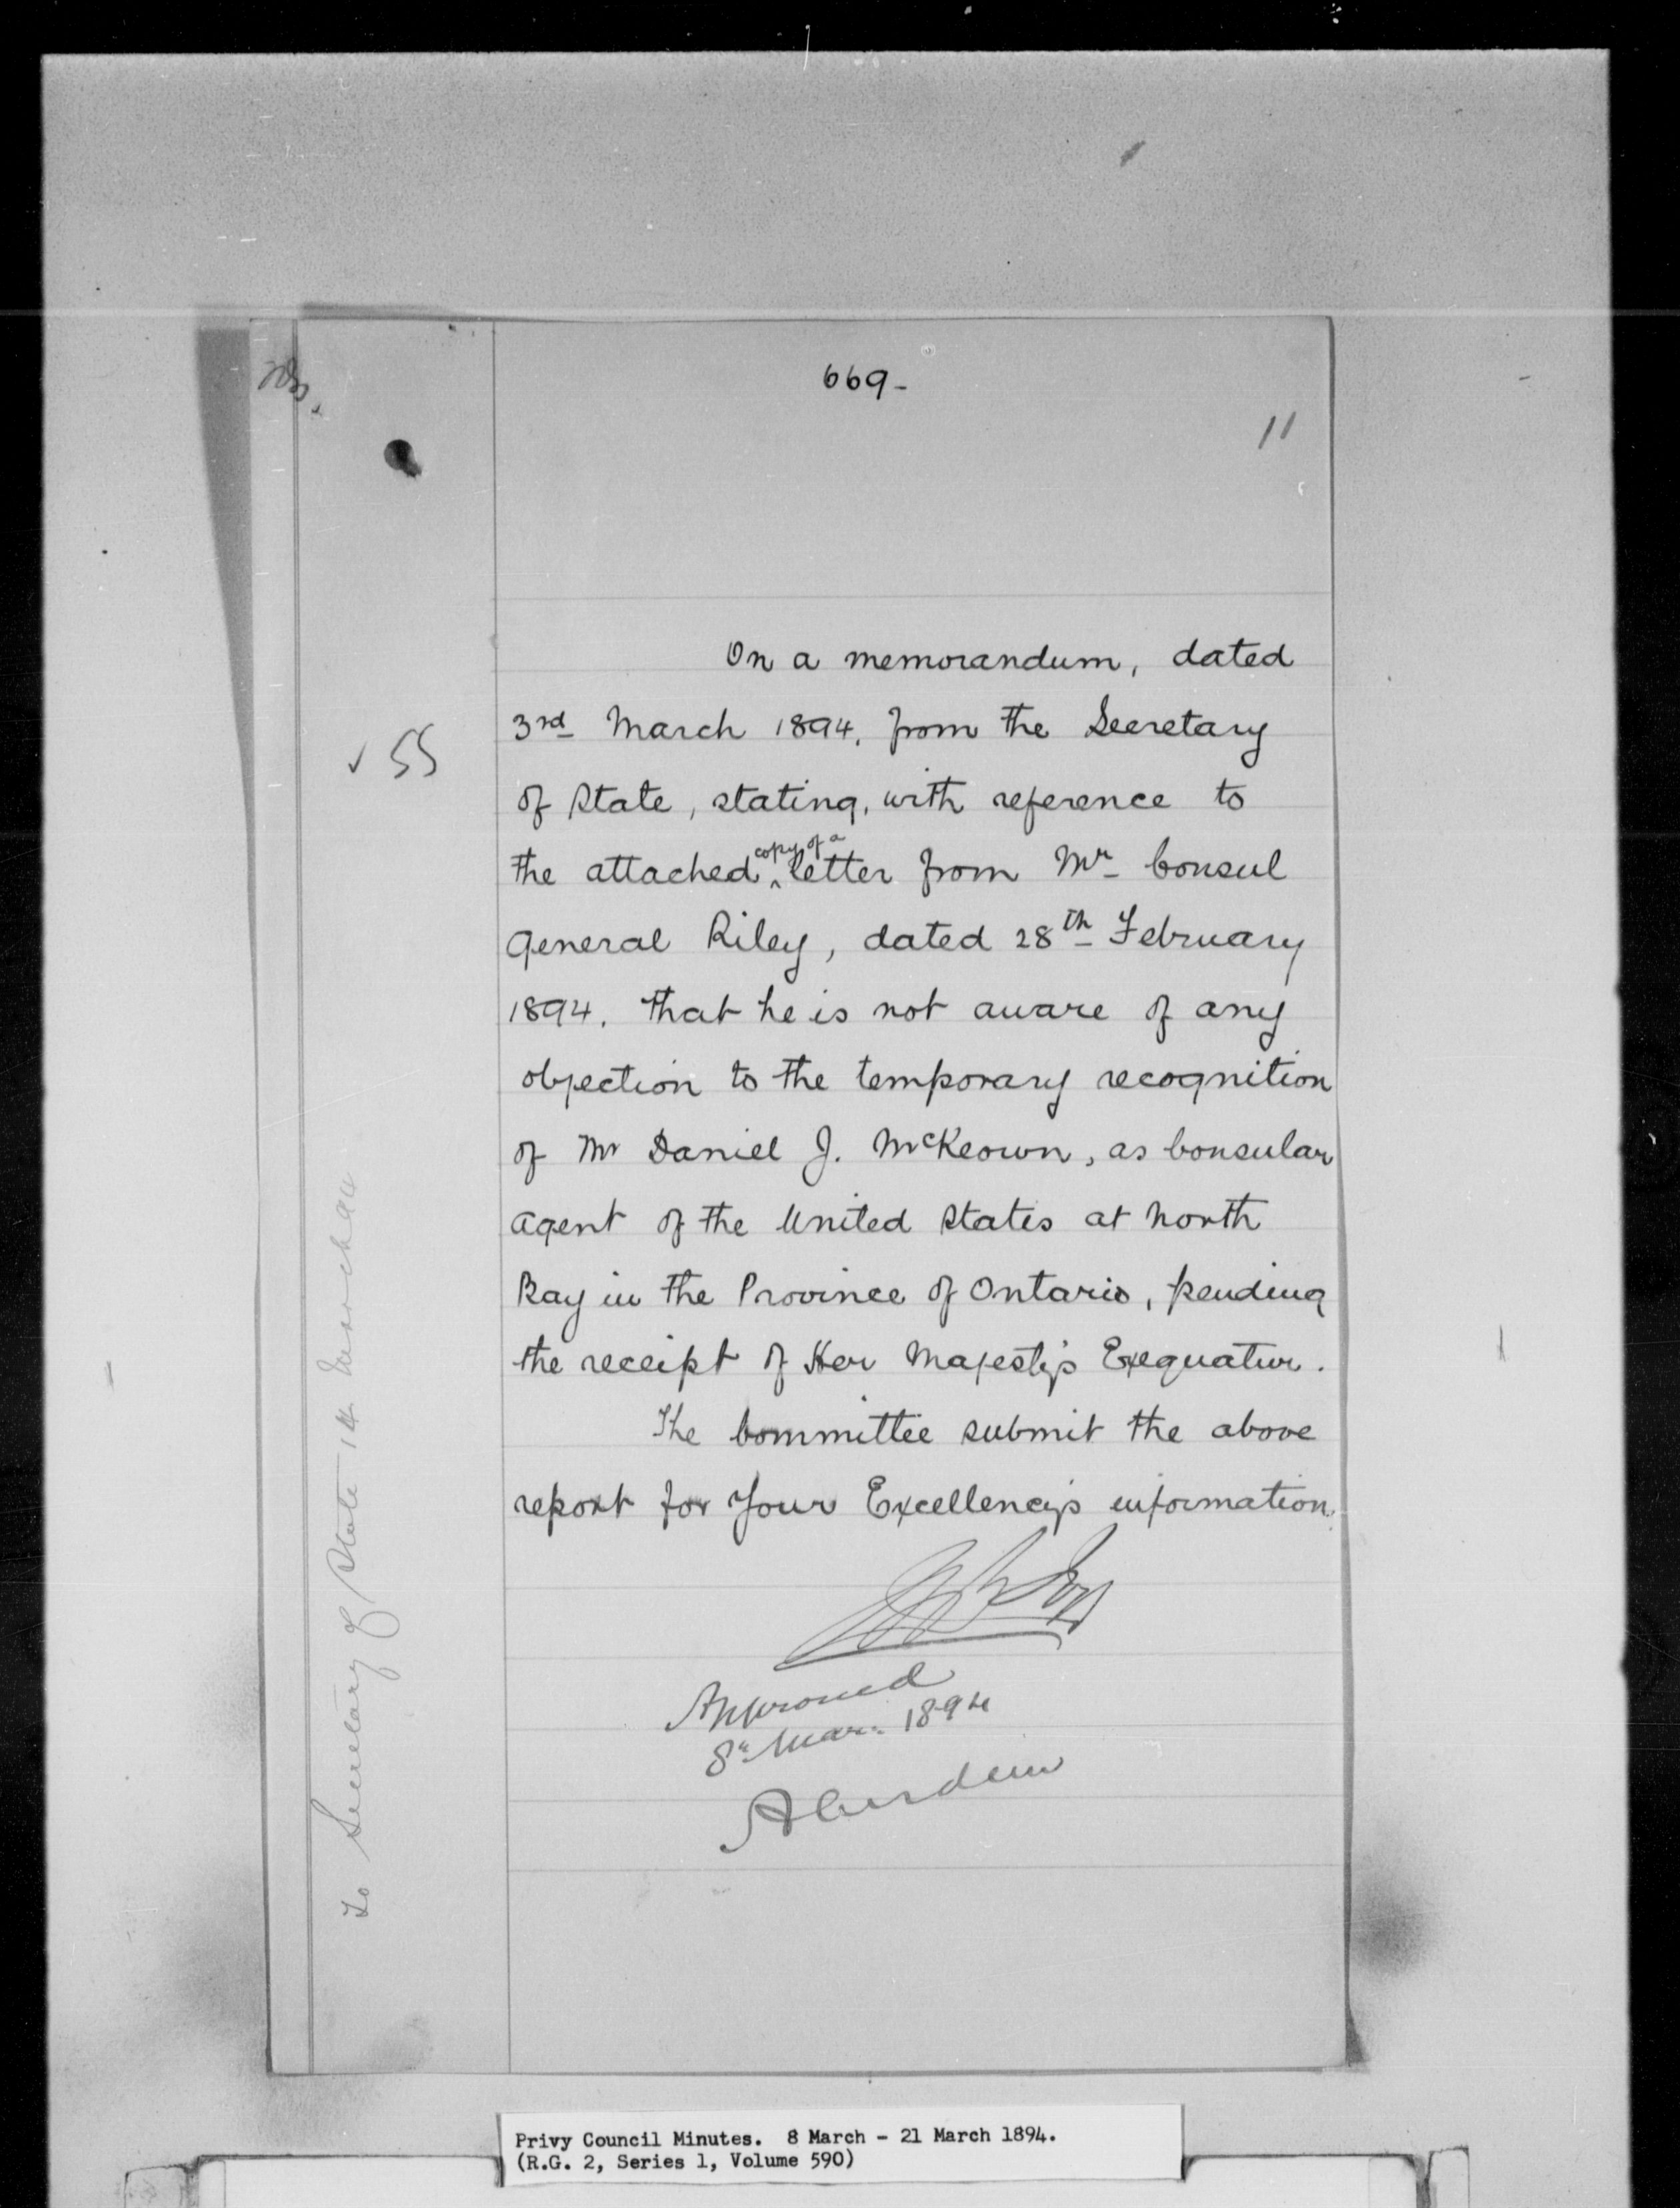 669-
11
On a memorandum, dated
3rd March 1894, from the Secretary
✓ 55
of State, stating, with reference to
copy of a
the attached ^ letter from Mr Consul
General Riley, dated 28th February
1894. that he is not aware of any
objection to the temporary recognition
of Mr Daniel J. McKeown, as Consular
Agent of the United States at North
Bay in the Province of Ontario, pending
the receipt of Her Majesty's Exequatur.
The Committee submit the above
report for Your Excellency's information.
Approved
8th Mar. 1894
Aberdeen
To Secretary of State 14 March 94
Privy Council Minutes. 8 March - 21 March 1894.
(R.G. 2, Series 1, Volume 590)